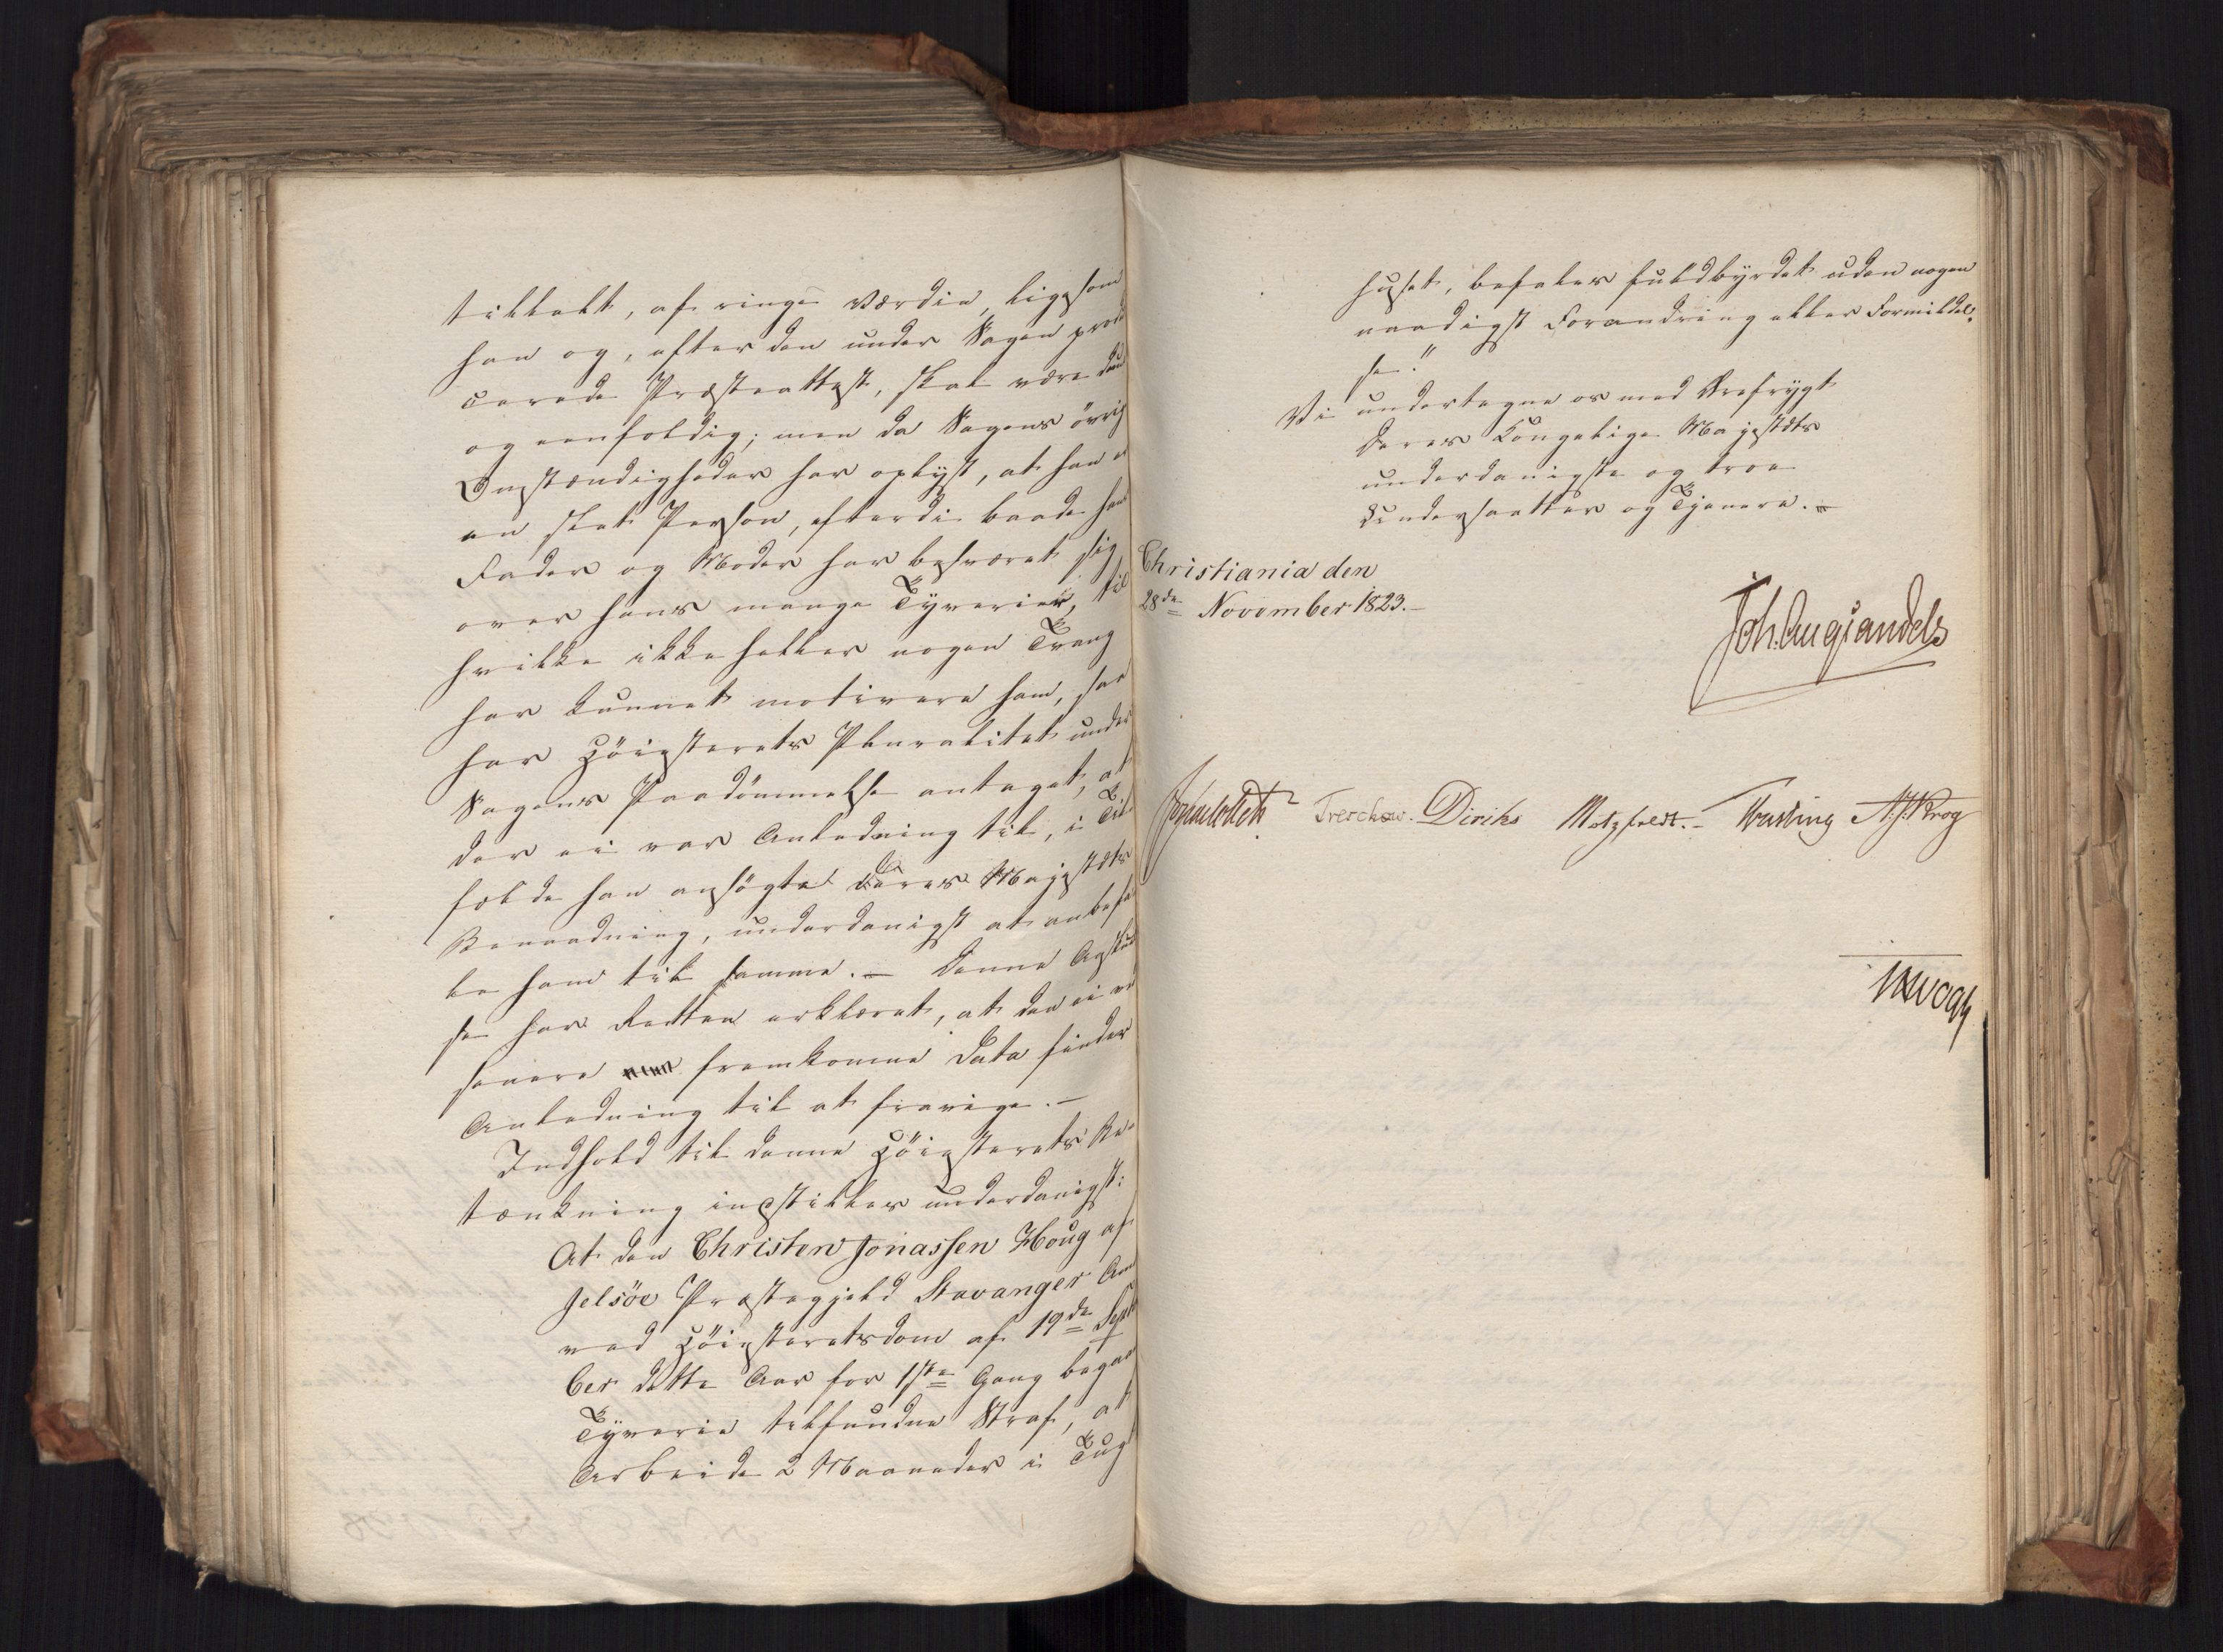 tillalt, af ringe Værdie, ligesom
han og, efter den under Sagen prod
cerede Præsteattest, skal være dum
og eenfoldig; men da Sagens övrig
Omstændigheder har oplyst, at han er
en slet Person, efterdi baade hans
Fader og Moder har besværet sig
over hans mange Tyverier, til
hvilke ikke heller nogen Trang
har kunnet motivere ham, saa
har Höiesterets Pluralitet under
Sagens Paadömmelse antaget, at
der ei var Anledning til, i Til¬
fælde han ansögte Deres Majestæts
Benaadning, underdanigst at anbefa
le ham til samme. — Denne Anskuel
se har Retten erklæret, at den ei ved
senere fremkomne Data finder
Anledning til at fravige. —
I Indhold til denne Höiesterets Be¬
tænkning indstilles underdanigst:
At den Christen Jonassen Houg af
Jelsöe Præstegjeld Stavanger Amt
ved Höiesteretsdom af 19de Septem
ber dette Aar for 1ste Gang begaaet
Tyverie tilfundne Straf, at
Arbeide 2 Maaneder i Tugt
huset, befales fuldbyrdet uden nogen
naadigst Forandring eller Formildel¬
se."
Vi undertegne os med Ærefrygt
Deres Kongelige Majestæts
underdanigste og troe
Undersaatter og Tjenere. —
Christiania den
28de November 1823. —
Joh. Aug. Sandels
Jonas Collett Treschow. Diriks Motzfeldt. — Fasting A. J. Krog
Vogt